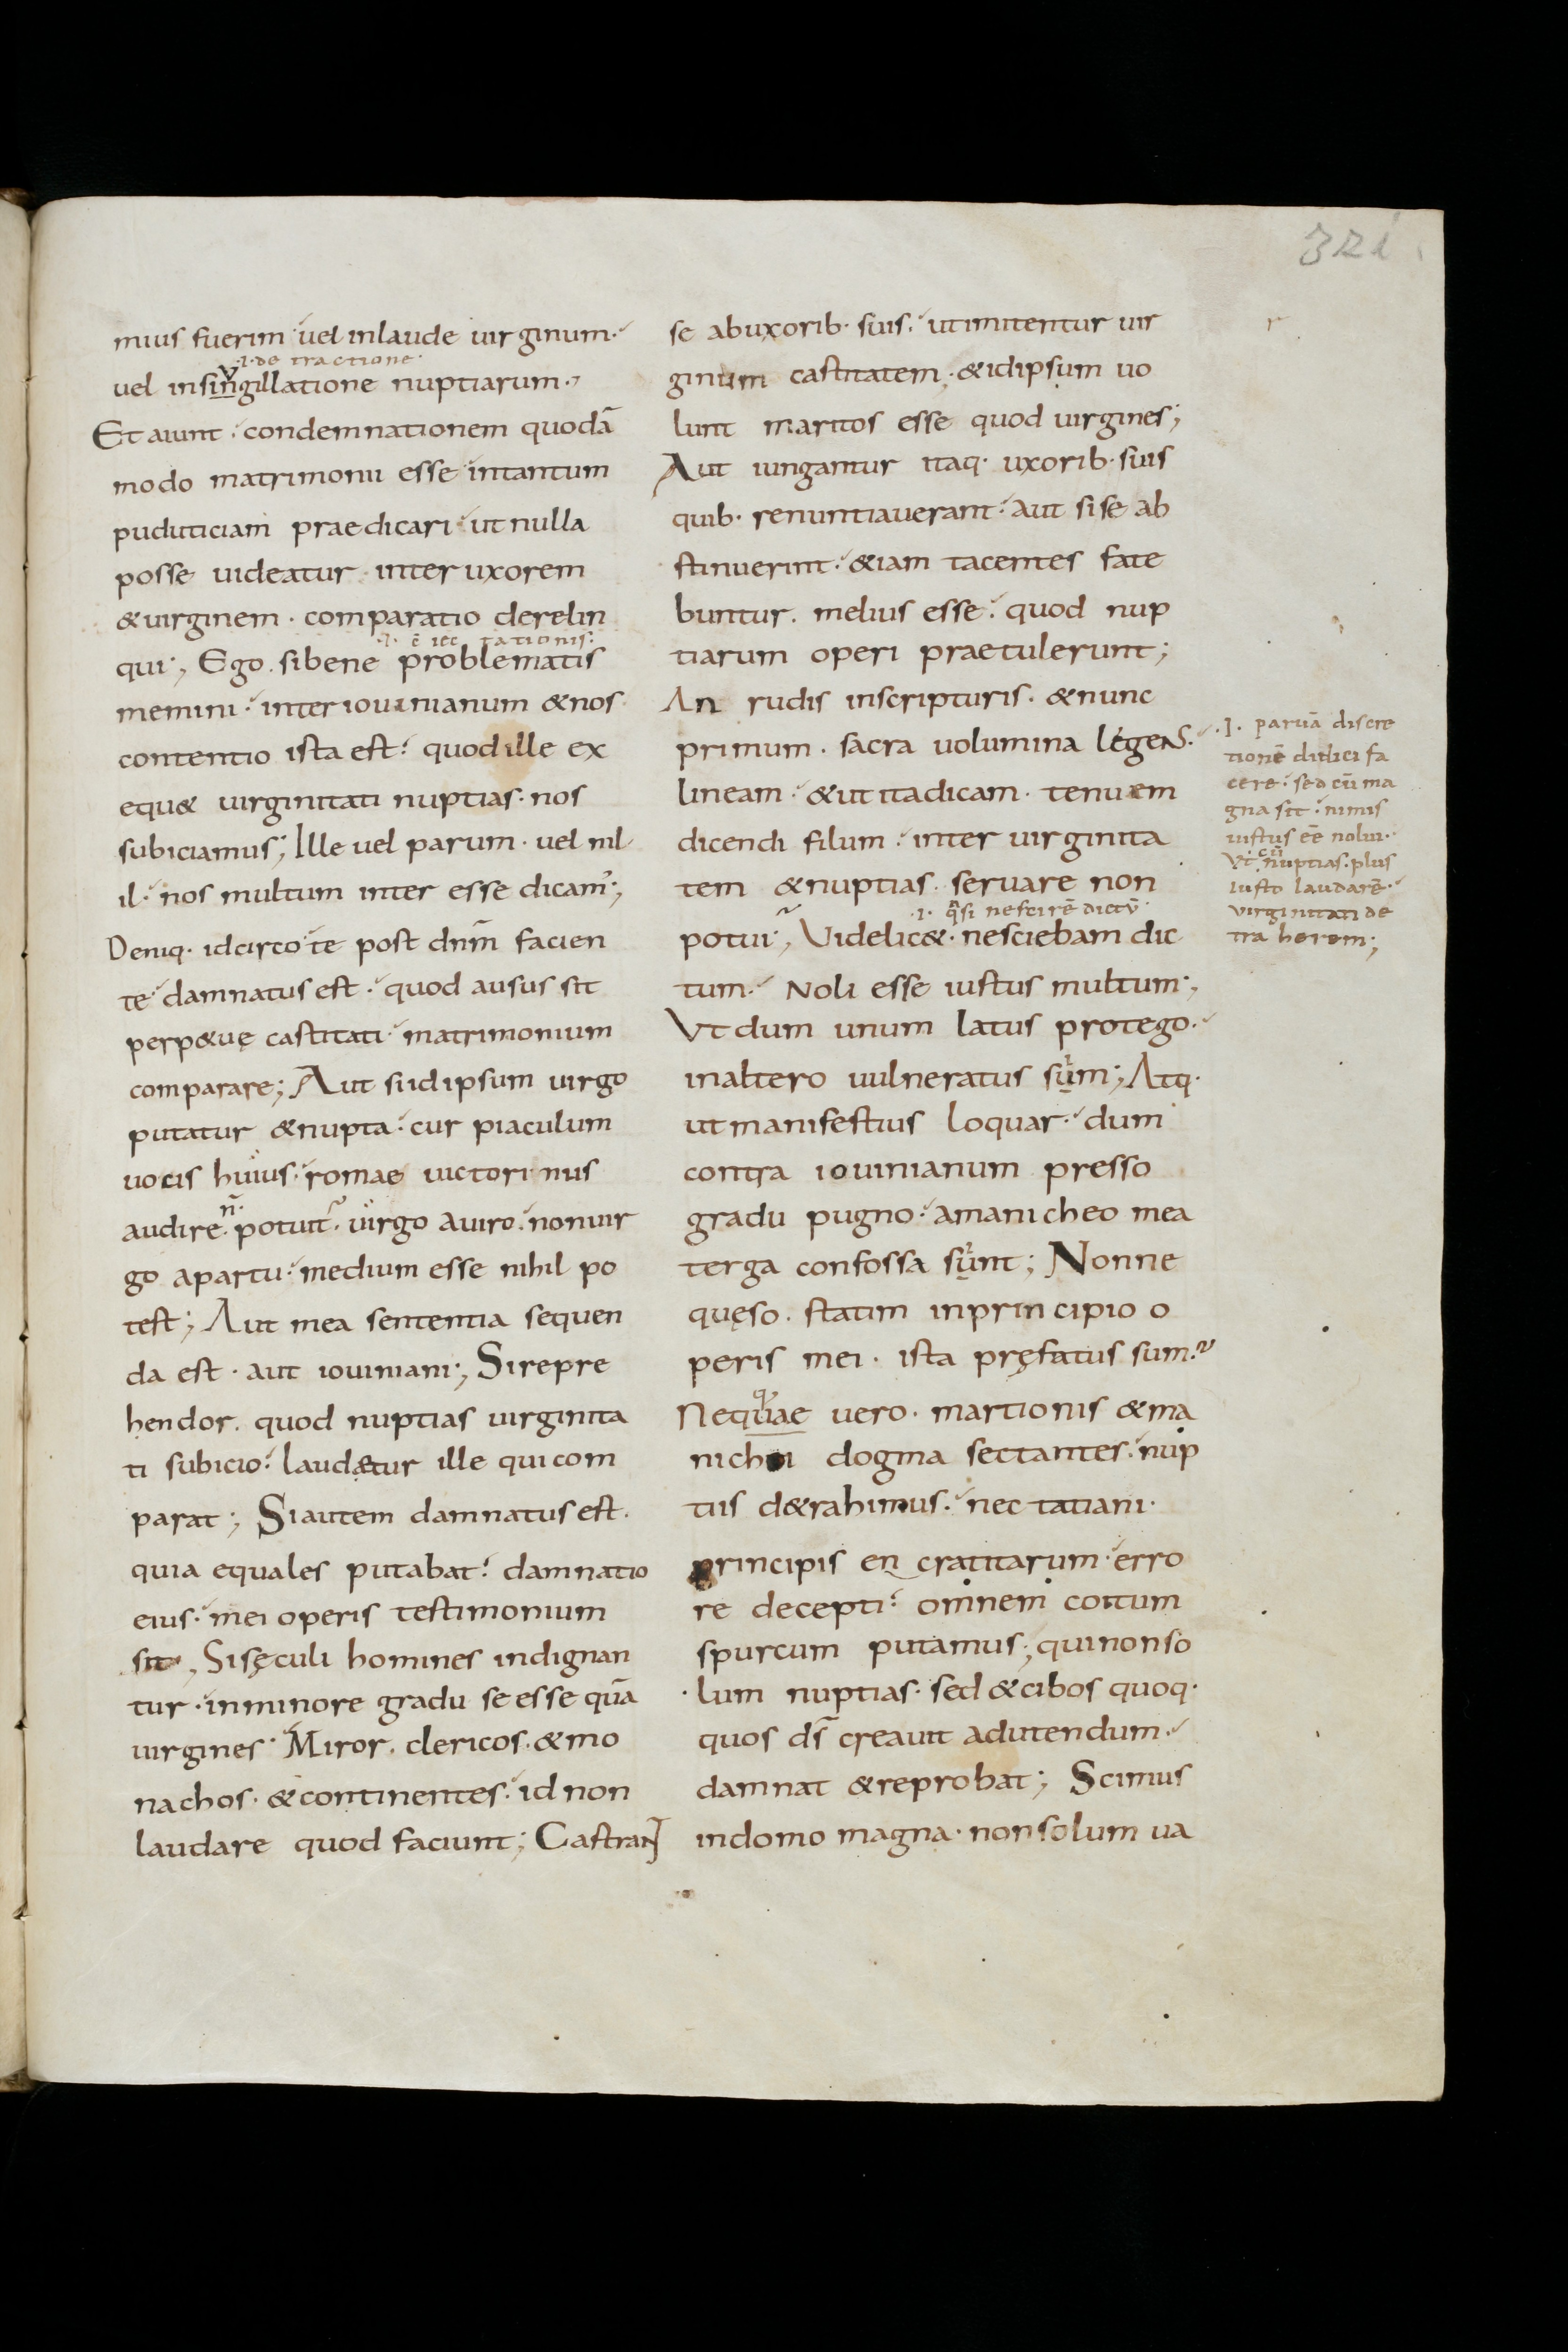 321
mius fuerim uel inlaude uirginum·
·i· de tractione·
uel insingillatione nuptiarum·
Et aiunt· condemnationem quodā
modo matrimonii esse intantum
puduticiam praedicari· ut nulla
posse uideatur inter uxorem
&uirginem· comparatio derelin
·i· ē iec tationis·
qui; Ego sibene problematis
memini· inter iouinianum &nos·
contentio ista est· quod ille ex
equ& uirginitati nuptias· nos
subiciamus; Ille uel parum· uel nil
il· nos multum inter esse dicam';
Deniq· idcirco te post dn̄m facien
te damnatus est· quod ausus sit
perp&uę castitati matrimonium
comparare; Aut si idipsum uirgo
putatur &nupta· cur piaculum
uocis huius· romae uictorinus
n̄·
audire· potuit· uirgo auiro· nonuir
go apartu· medium esse nihil po
test; Aut mea sententia sequen
da est· aut iouiniani; Sirepre
hendor· quod nuptias uirginita
ti subicio· laudetur ille quicom
parat; Siautem damnatus est·
quia equales putabat· damnatio
eius· mei operis testimonium
sit; Sisęculi homines indignan
tur· inminore gradu se esse quā
uirgines· Miror· clericos· &mo
nachos· &continentes· id non
laudare quod faciunt; Castran
se abuxorib· suis· utimitentur uir
ginum castitatem· &idipsum uo
lunt maritos esse quod uirgines;
Aut iungantur itaq· uxorib· suis
quib· renuntiauerant· aut sise ab
stinuerint· &iam tacentes fate
buntur· melius esse· quod nup
tiarum operi praetulerunt;
An rudis inscripturis· &nunc
primum· sacra uolumina legens·
lineam· &ut itadicam· tenuem
dicendi filum· inter uirginita
tem &nuptias· seruare non
·i· q̄si nescirē dictū·
potui; Uidelic&· nesciebam dic
tum· Noli esse iustus multum;
Ut dum unum latus protego·
inaltero uulneratus sum; Atq·
ut manifestius loquar· dum
contra iouinianum presso
gradu pugno· amanicheo mea
terga confossa sunt; Nonne
quęso· statim inprincipio o
peris mei· ista pręfatus sum·
Nequae uero· martionis &ma
nichei dogma sectantes· nup
tiis d&rahimus· nec tatiani·
principis en cratitarum· erro
re decepti· omnem coitum
spurcum putamus; quinonso
lum nuptias· sed &cibos quoq·
quos dс̄ creauit adutendum·
damnat &reprobat; Scimus
indomo magna· non solum ua
·I· paruā discre
tionē didici fa
cere· sed cū ma
gna sit· nimis
iustus eē nolui·
cū
Ut nuptias· plus
iusto laudarē·
uirginitati de
tra herem;